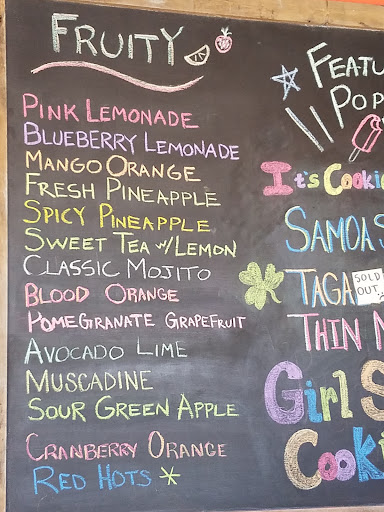 FRUITY
PINK LEMONADE
BLUEBERRY LEMONADE
MANGO ORANGE
FRESH PINEAPPLE
SPICY PINEAPPLE
SWEET TEA w/ LEMON
CLASSIC MOJITO
BLOOD ORANGE
POMEGRANATE GRAPEFRUIT
AVOCADO LIME
MUSCADINE
SOUR GREEN APPLE
CRANBERRY ORANGE
RED HOTS *
FEATU
POP
It's Cookie
SAMOAS
TAGA
SOLD
OUT
THIN M
Girl S
Cooki